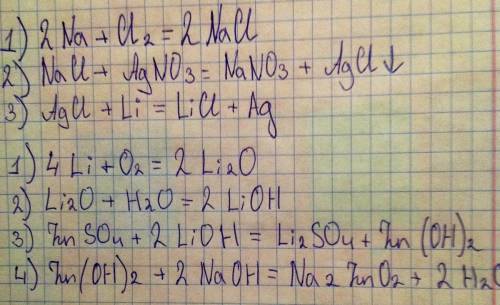 1) 2 Na + Cl₂ = 2 NaCl
2) NaCl + AgNO₃ = NaNO₃ + AgCl↓
3) AgCl + Li = LiCl + Ag
1) 4 Li + O₂ = 2 Li₂O
2) Li₂O + H₂O = 2 LiOH
3) ZnSO₄ + 2 LiOH = Li₂SO₄ + Zn(OH)₂
4) Zn(OH)₂ + 2 NaOH = Na₂ZnO₂ + 2 H₂O